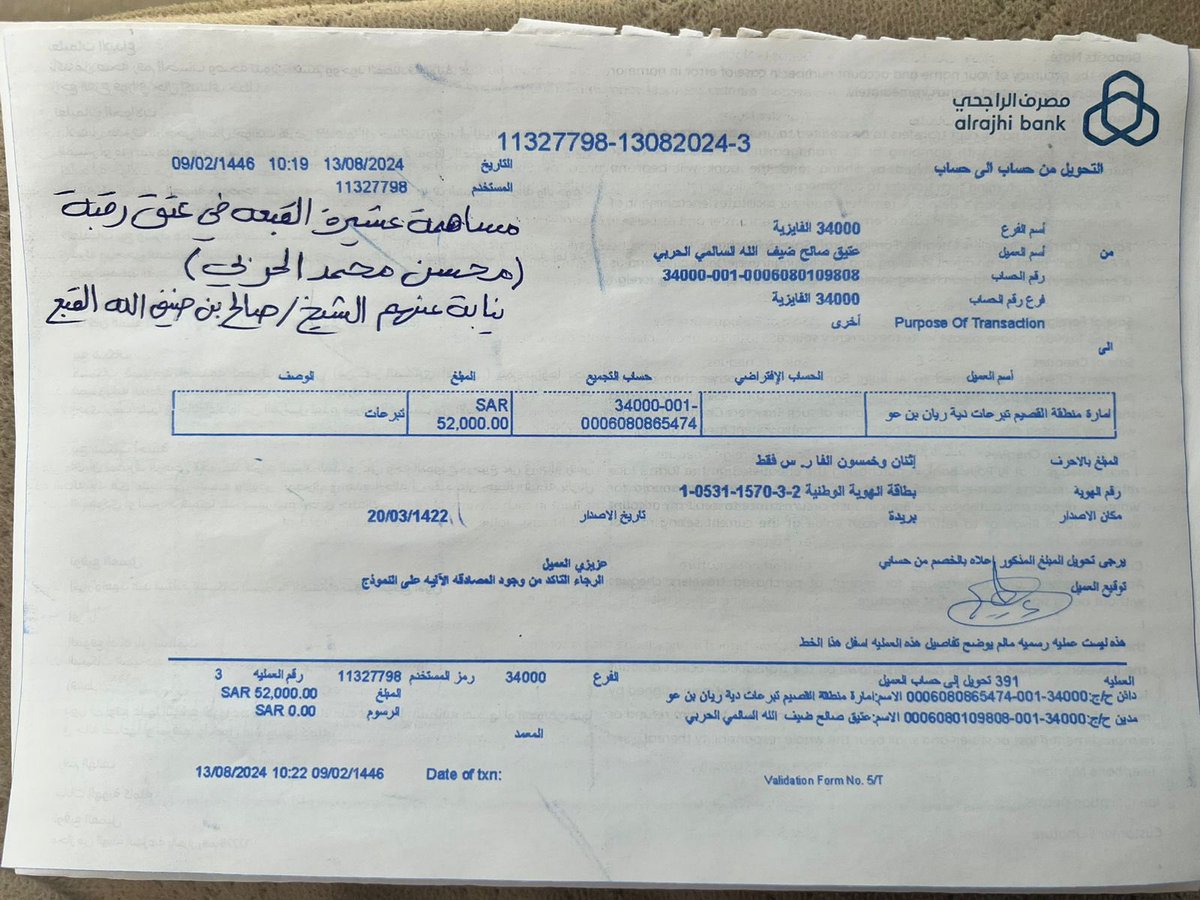 مصرف الراجحي
alrajhi bank
11327798-13082024-3
التحويل من حساب الى حساب
التاريخ 13/08/2024 10:19 09/02/1446
المستخدم 11327798
مساهمة عشيرة القبعه في عتق رقبة
(محسن محمد الحربي)
نيابة عنهم الشيخ/صالح بن ضيف الله القبع
من
أسم الفرع 34000 الفايزية
أسم العميل عتيق صالح ضيف الله السالمي الحربي
رقم الحساب 34000-001-0006080109808
فرع رقم الحساب 34000 الفايزية
Purpose Of Transaction أخرى
الى
أسم العميل الحساب الإفتراضي حساب التجميع المبلغ الوصف
امارة منطقة القصيم تبرعات دية ريان بن عو 34000-001-0006080865474 SAR 52,000.00 تبرعات
المبلغ بالاحرف إثنان وخمسون الفا ر. س فقط
رقم الهوية بطاقة الهوية الوطنية 2-3-1570-0531-1
مكان الاصدار بريدة تاريخ الاصدار 20/03/1422
يرجى تحويل المبلغ المذكور اعلاه بالخصم من حسابي
توقيع العميل
عزيزي العميل
الرجاء التاكد من وجود المصادقه الآليه على النموذج
هذه ليست عمليه رسميه مالم يوضح تفاصيل هذه العمليه اسفل هذا الخط
العمليه 391 تحويل إلى حساب العميل الفرع 34000 رمز المستخدم 11327798 رقم العمليه 3
دائن ح/ج:34000-001-0006080865474 الاسم:امارة منطقة القصيم تبرعات دية ريان بن عو المبلغ SAR 52,000.00
مدين ح/ج:34000-001-0006080109808 الاسم:عتيق صالح ضيف الله السالمي الحربي الرسوم SAR 0.00
المعمد
13/08/2024 10:22 09/02/1446 Date of txn:
Validation Form No. 5/T